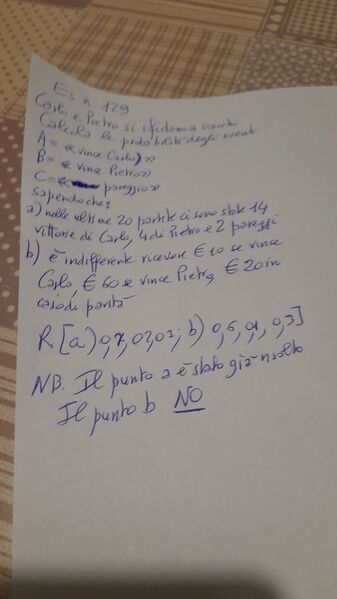 Es n 129
Carlo e Pietro si sfidano a scacchi.
Calcola le probabilità degli eventi
A = « vince Carlo »
B = « vince Pietro »
C = « pareggio »
sapendo che:
a) nelle ultime 20 partite ci sono state 14
vittorie di Carlo, 4 di Pietro e 2 pareggi
b) è indifferente ricevere € 10 se vince
Carlo, € 60 se vince Pietro, € 20 in
caso di parità
R [a) 0,7, 0,2 0,1; b) 0,6, 0,1, 0,3]
NB. Il punto a è stato già risolto
Il punto b NO